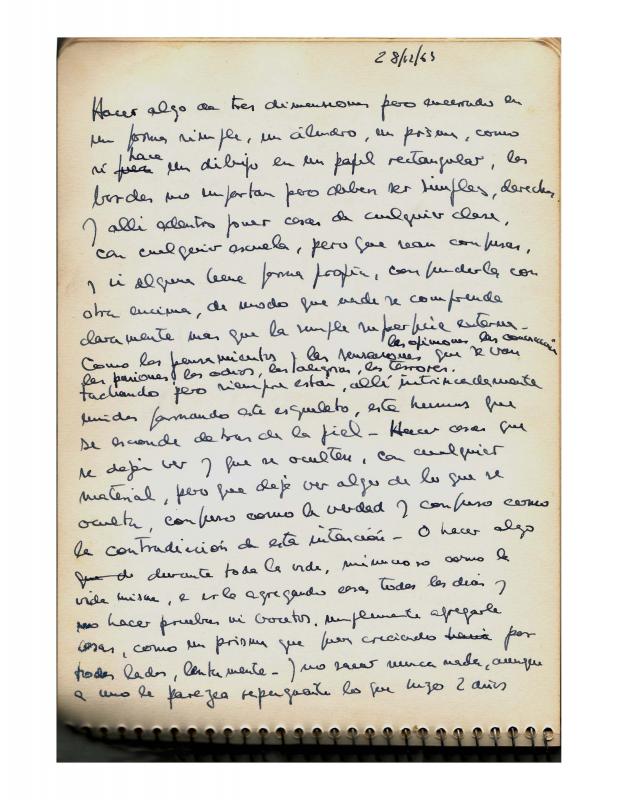 28/12/63
Hacer algo en tres dimensiones pero encerrado en
una forma simple, un cilindro, un prisma, como
si fuera hace un dibujo en un papel rectangular, los
bordes no importan pero deben ser simples, derechos
y allí adentro poner cosas de cualquier clase,
con cualquier escuela, pero que sean confusas,
y si alguna tiene forma propia, confundirla con
otra encima, de modo que nada se comprenda
claramente mas que la simple superficie externa -
las opiniones, las
Como los pensamientos y las sensaciones, que se van
las pasiones, los odios, las alegrías, los terrores.
tachando pero siempre están, allí intrincadamente
unidas formando este esqueleto, este humus que
se esconde detras de la piel - Hacer cosas que
se dejan ver y que se oculten, con cualquier
material, pero que deje ver algo de lo que se
oculta, confuso como la verdad y confuso como
la contradicción de esta intención - O hacer algo
que de durante toda la vida, minucioso como la
vida misma, e irle agregando cosas todos los días y
no hacer pruebas ni bocetos, simplemente agregarle
cosas, como un prisma que fuera creciendo hacia por
todos lados, lentamente - y no sacar nunca nada, aunque
a uno le parezca repugnante lo que hizo 2 días